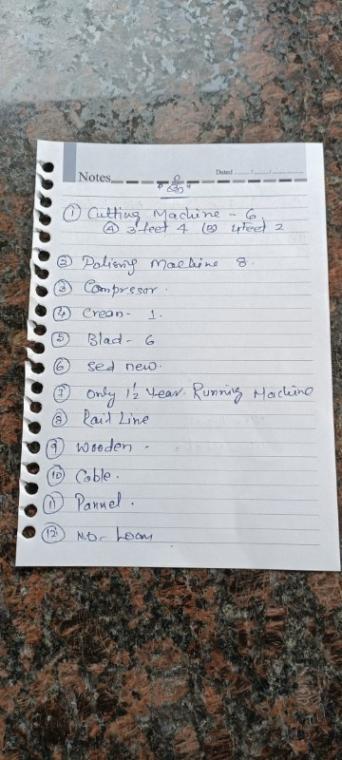 Notes
Dated
① Cutting Machine - 6
Ⓐ 3 feet 4 Ⓑ 4 feet 2
② Polising Machine 8.
③ Comprssor.
④ Crean - 1.
⑤ Blad - 6
⑥ Sed new.
⑦ Only 1½ Year Running Machine
⑧ Rail Line
⑨ Wooden -
⑩ Cable.
⑪ Pannel.
⑫ No - Loan